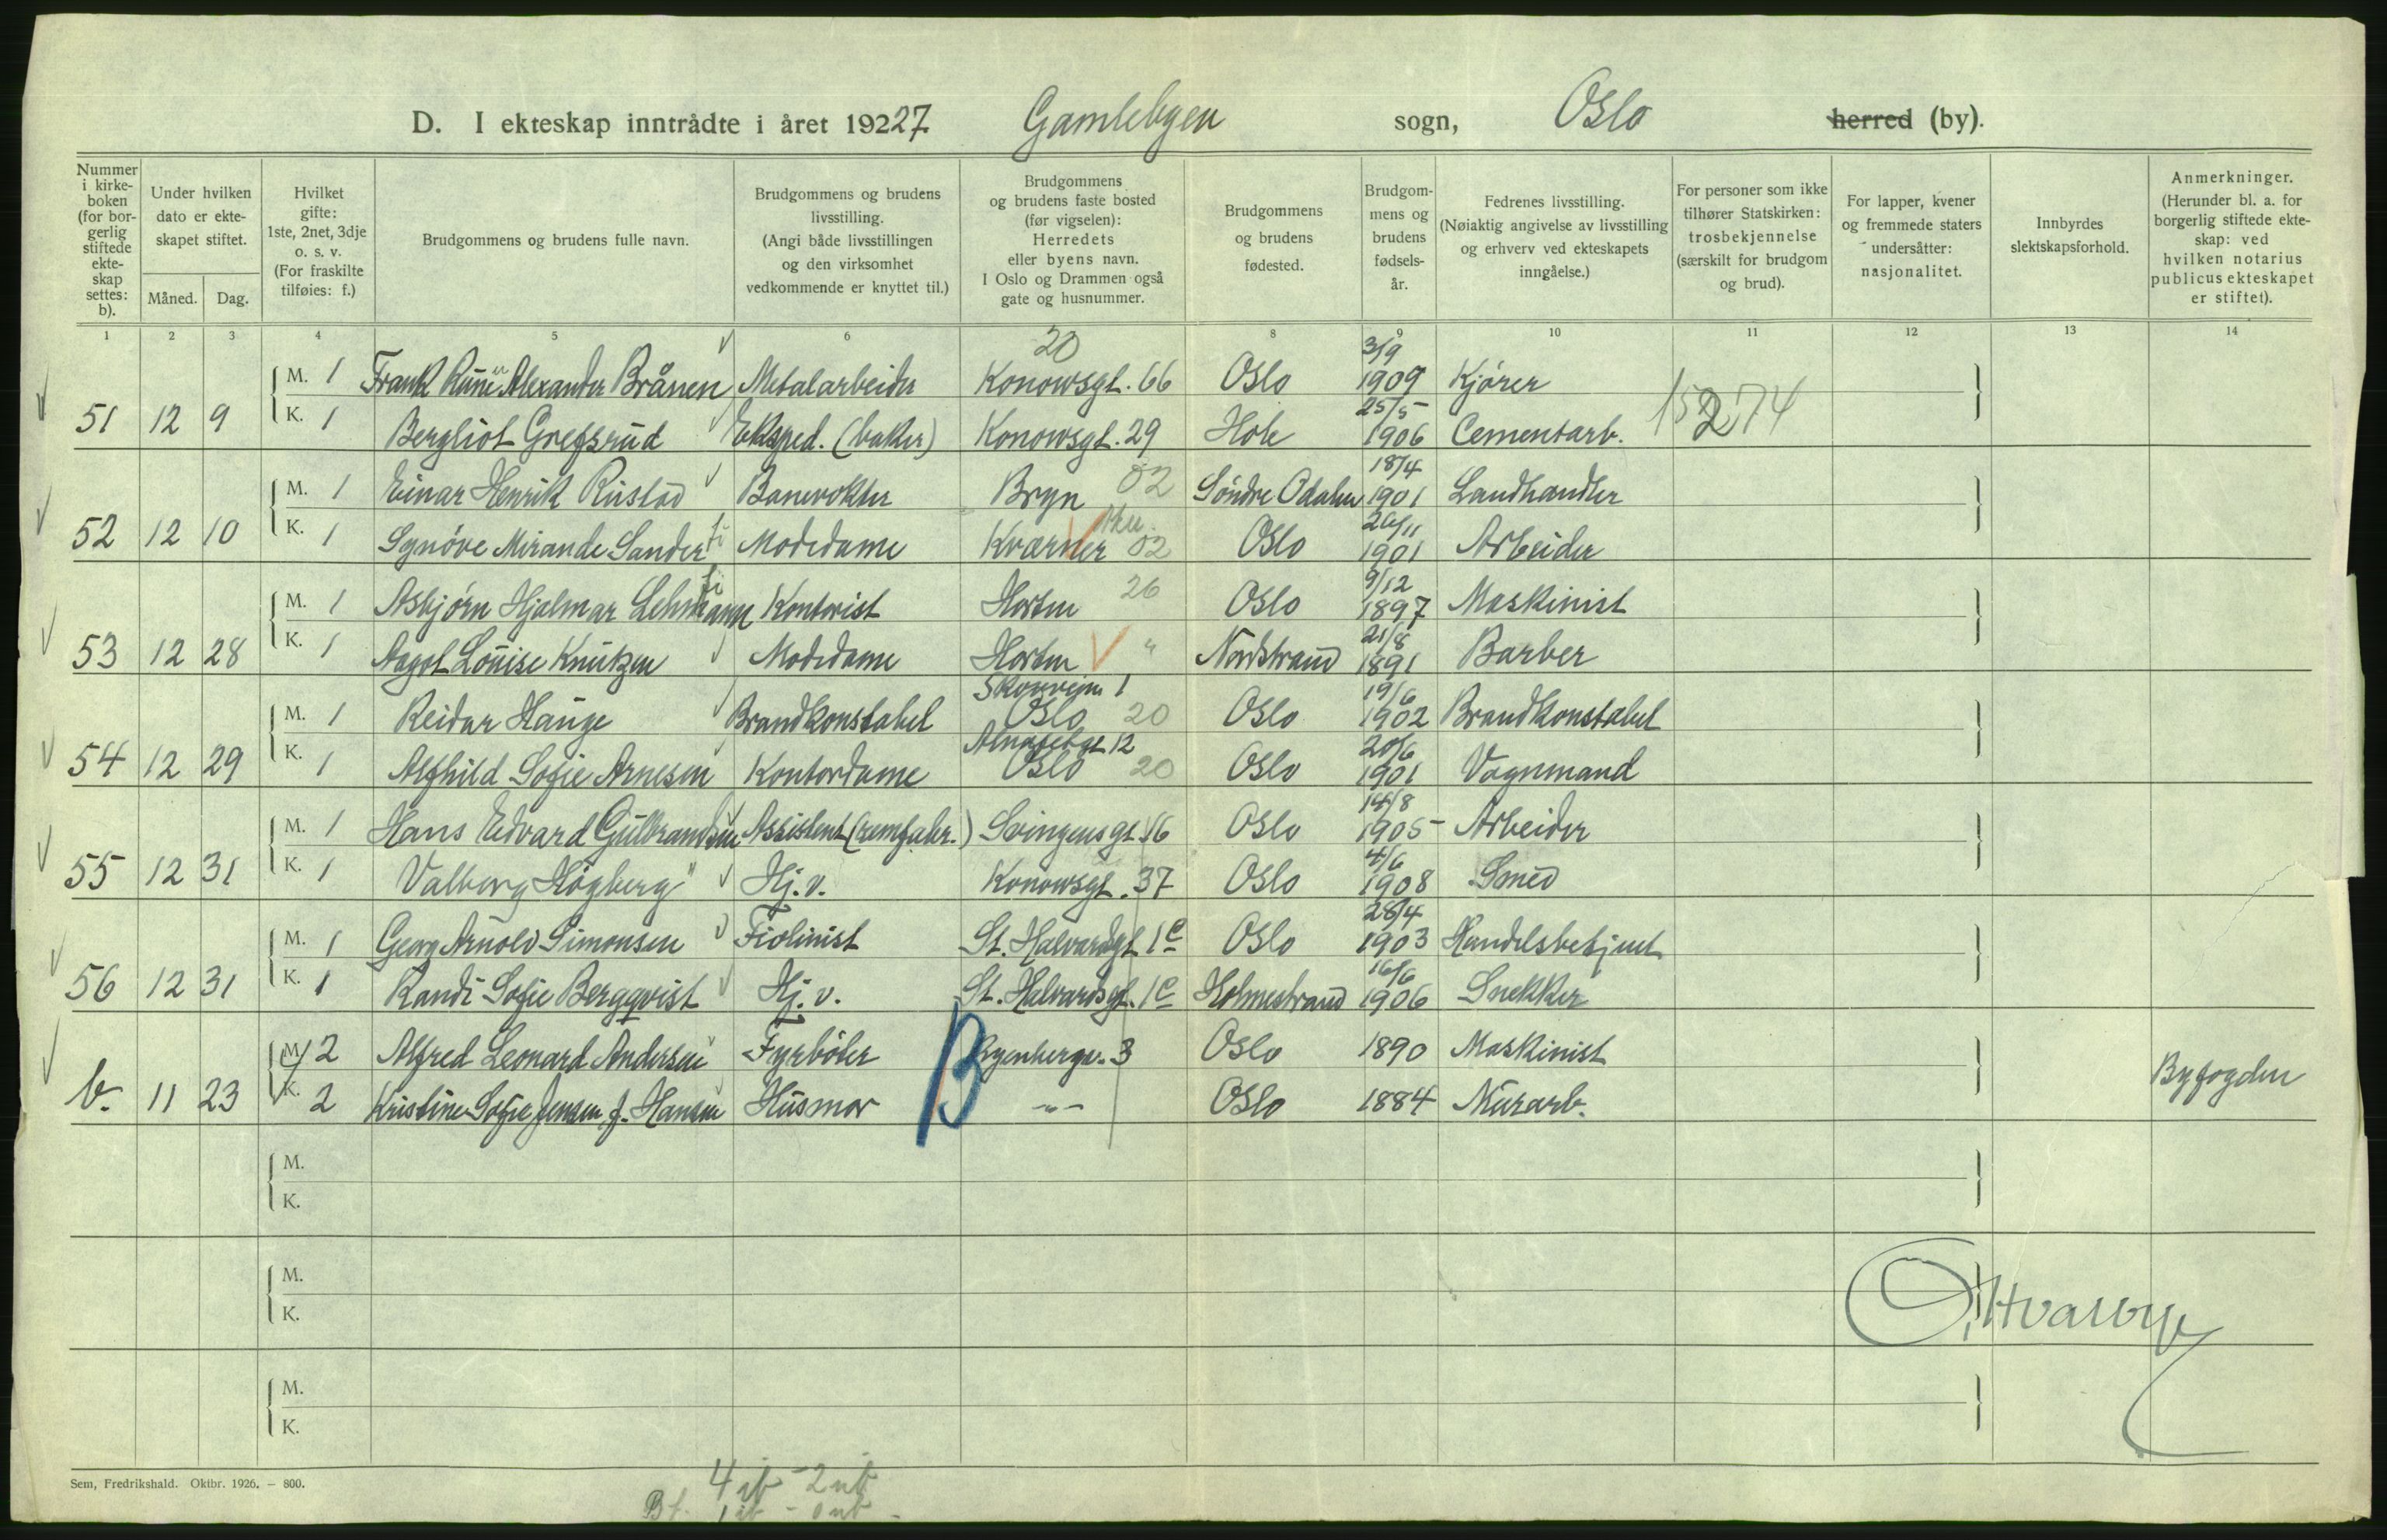 D. I ekteskap inntrådte i året 19227 Gamlebyen sogn, Oslo herred (by).
Nummer i kirkeboken (for borgerlig stiftede ekteskap settes: b).
Under hvilken dato er ekteskapet stiftet.
Måned. Dag.
Hvilket gifte: 1ste, 2net, 3dje o. s. v. (For fraskilte tilføies: f.)
Brudgommens og brudens fulle navn.
Brudgommens og brudens livsstilling. (Angi både livsstillingen og den virksomhet vedkommende er knyttet til.)
Brudgommens og brudens faste bosted (før vigselen): Herredets eller byens navn. I Oslo og Drammen også gate og husnummer.
Brudgommens og brudens fødested.
Brudgommens og brudens fødselsår.
Fedrenes livsstilling. (Nøiaktig angivelse av livsstilling og erhverv ved ekteskapets inngåelse.)
For personer som ikke tilhører Statskirken: trosbekjennelse (særskilt for brudgom og brud).
For lapper, kvener og fremmede staters undersåtter: nasjonalitet.
Innbyrdes slektskapsforhold.
Anmerkninger. (Herunder bl. a. for borgerlig stiftede ekteskap: ved hvilken notarius publicus ekteskapet er stiftet).
1 2 3 4 5 6 8 9 10 11 12 13 14
20 3/9
M. 1 Frank Rune Alexander Brånen Metalarbeider Konowsgt. 66 Oslo 1909 Kjører
51 12 9 K. 1 Bergliot Grefsrud Eksped. (baker) Konowsgt. 29 Hole 25/5 1906 Cementarb. 15274
M. 1 Einar Henrik Rustad Banevokter Bryn 02 Söndre Odalen 18/4 1901 Landhandler
52 12 10 K. 1 Synöve Mirande Sander Modedame Kværner 02 Oslo 26/11 1901 Arbeider
M. 1 Asbjørn Hjalmar Lehmann Kontorist Horten 26 Oslo 9/12 1897 Maskinist
53 12 28 K. 1 Aagot Louise Knutzen Modedame Horten " Nordstrand 21/8 1891 Barber
M. 1 Reidar Hauge Brandkonstabel Skovveien 1 Oslo 20 Oslo 19/6 1902 Brandkonstabel
54 12 29 K. 1 Alfhild Sofie Arnesen Kontordame 12 Oslo 20 Oslo 20/6 1901 Vognmand
M. 1 Hans Edvard Gulbrandsen Assistent (remfabr.) Svingensgt. 16 Oslo 14/8 1905 Arbeider
55 12 31 K. 1 Valborg Högberg Hj. v. Konowsgt. 37 Oslo 4/6 1908 Smed
M. 1 Georg Arnold Simonsen Fiolinist St. Halvardsgt. 1c Oslo 28/4 1903 Handelsbetjent
56 12 31 K. 1 Randi Sofie Bergqvist Hj. v. St. Halvardsgt. 1c Holmestrand 16/6 1906 Snekker
M. 2 Alfred Leonard Andersen Fyrbøter B Ryenbergv. 3 Oslo 1890 Maskinist
b. 11 23 K. 2 Kristine Sofie Jensen f. Hansen Husmor -"- Oslo 1884 Murarb. Byfogden
M.
K.
M.
K.
M.
K.
Sem, Fredrikshald. Oktbr. 1926. – 800.
4 ib - 2 ub
Bf. 1 ib - 0 ub -